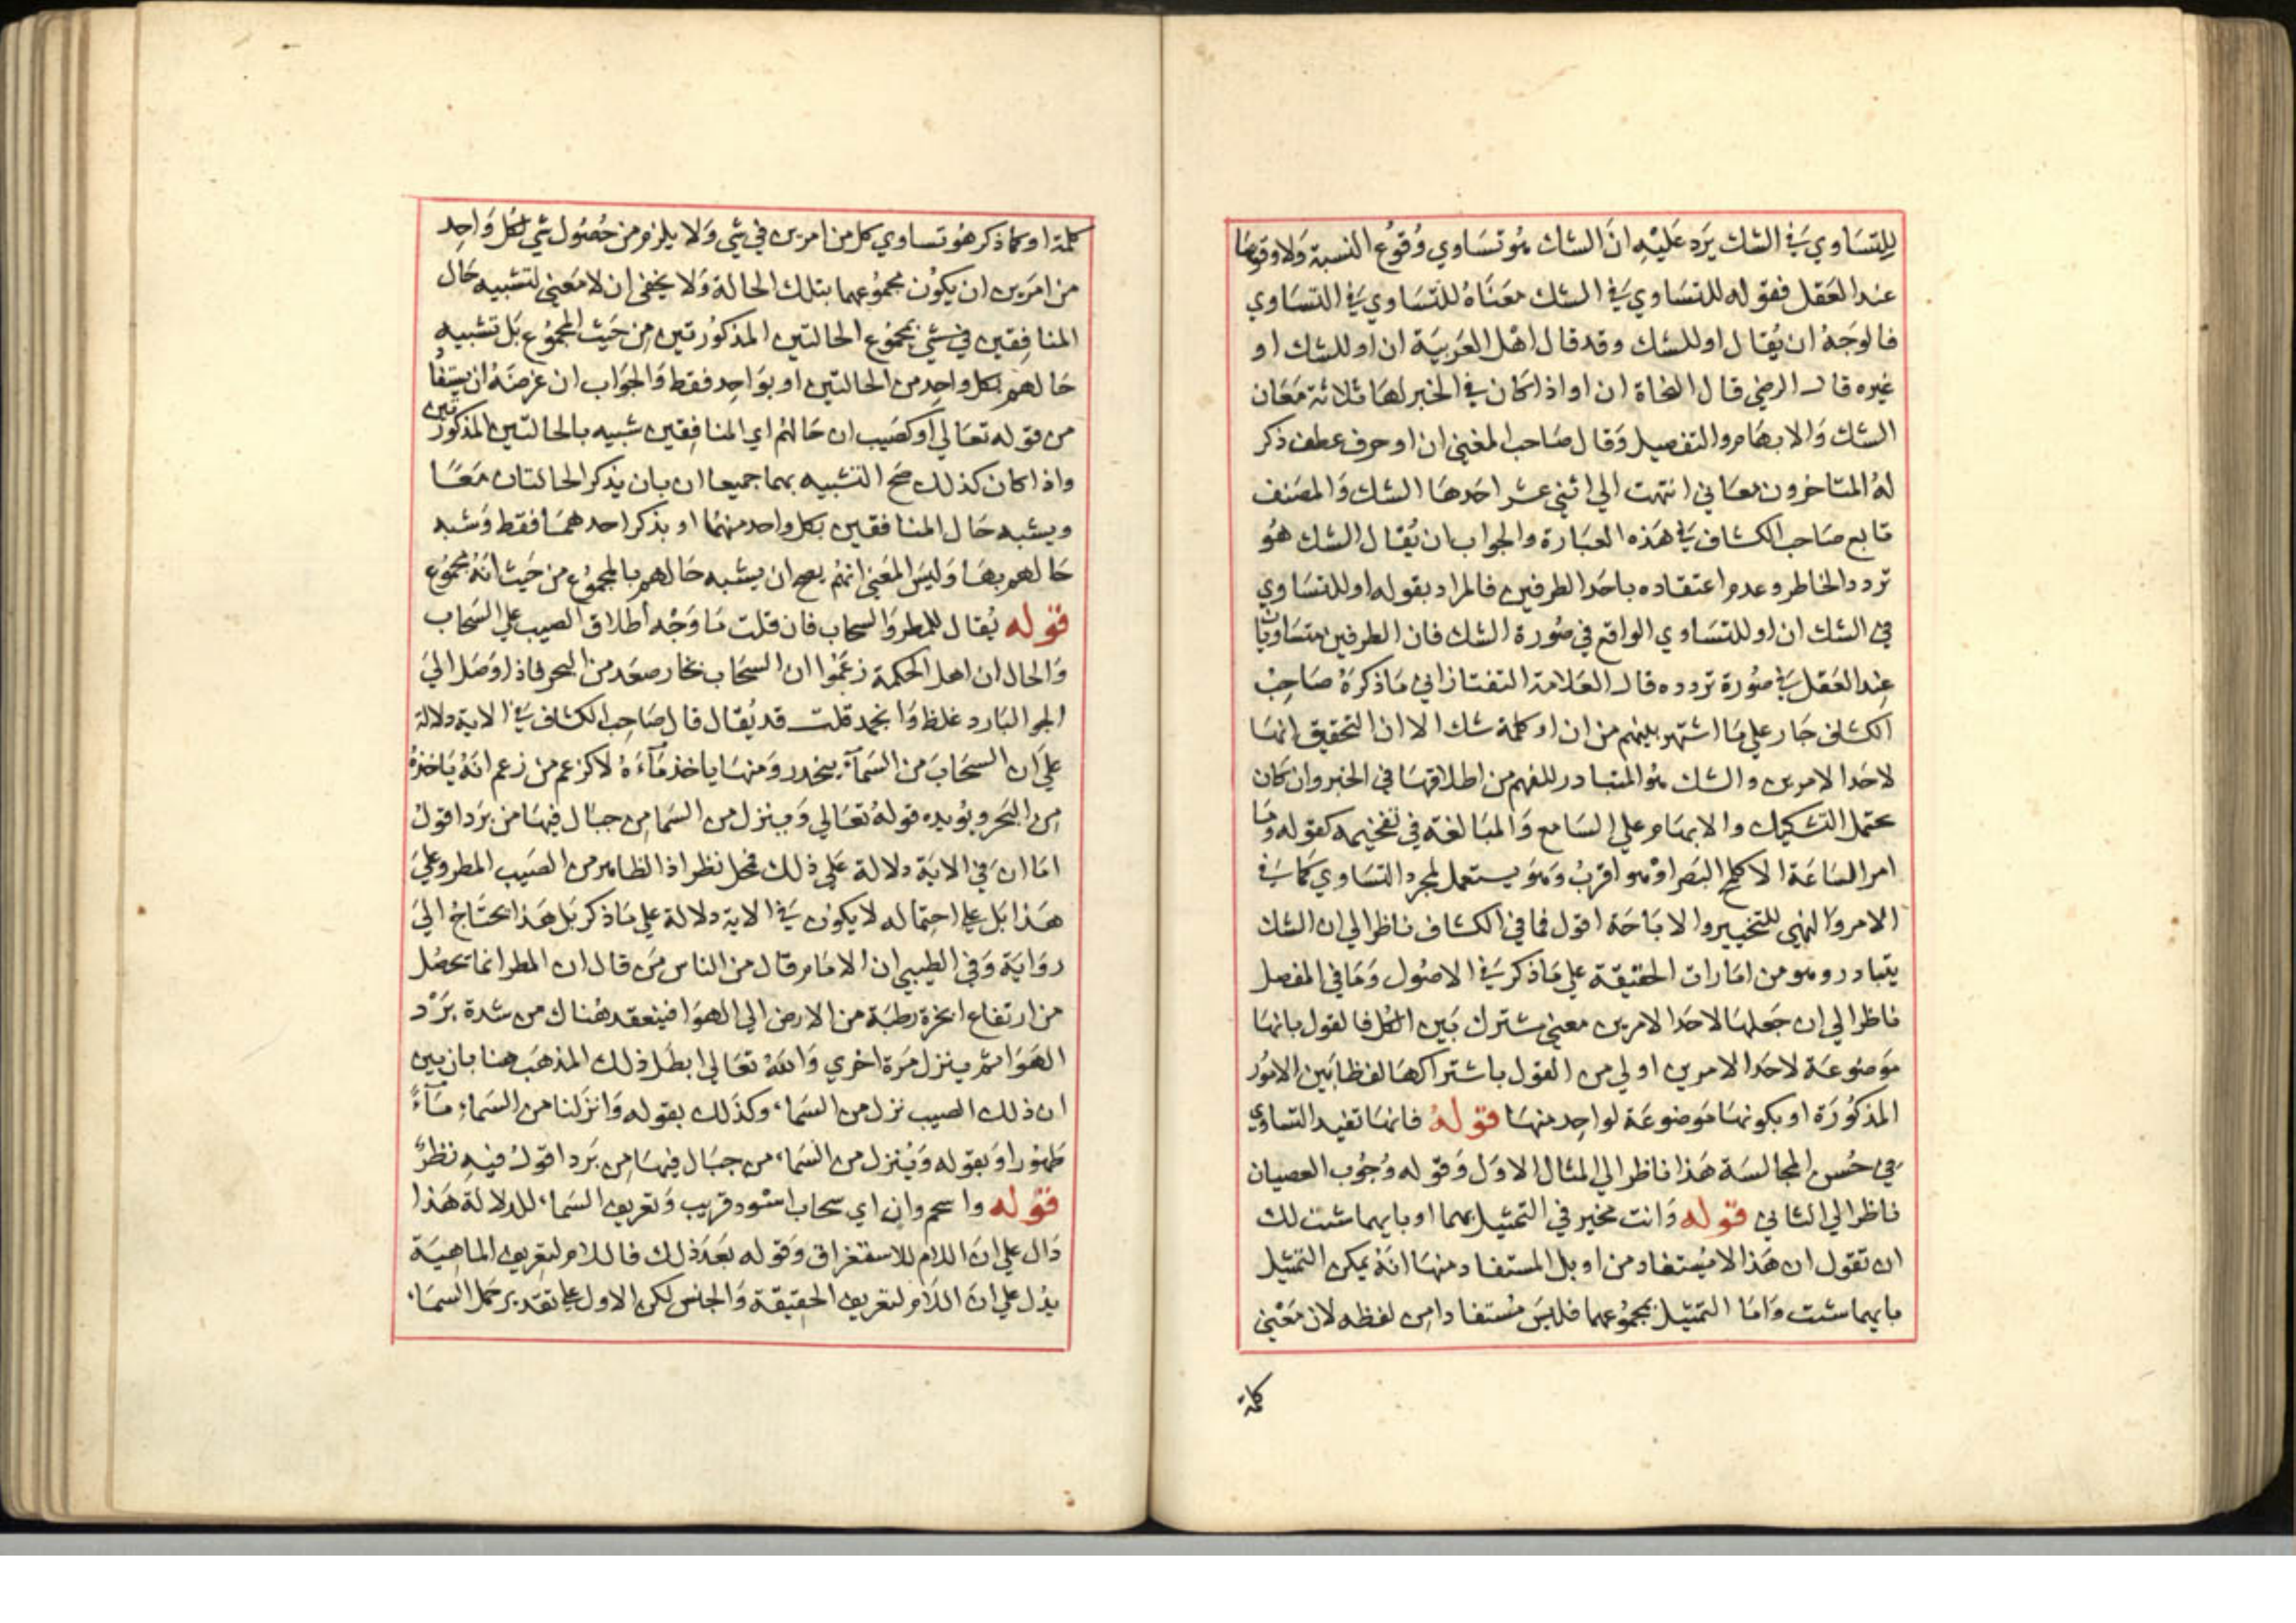 للتساوي في الشك يرد عليه ان الشك هو تساوي وقوع النسبة ولا وقوعها
عند العقل فقوله للتساوي في الشك معناه للتساوي في التساوي
فالوجه ان يقال او للشك وقد قال اهل العربية ان او للشك او
غيره قال الرضي قال النحاة ان او اذا كان في الخبر لها ثلاثة معان
الشك والابهام والتفصيل وقال صاحب المغني ان او حرف عطف ذكر
له المتاخرون معاني انتهت الي اثني عشر احدها الشك والمصنف
تابع صاحب الكشاف في هذه العبارة والجواب ان يقال الشك هو
تردد الخاطر وعدم اعتقاده باحد الطرفين فالمراد بقوله او للتساوي
في الشك ان او للتساوي الواقع في صورة الشك فان الطرفين متساويان
عند العقل في صورة تردده قال العلامة التفتازاني ما ذكره صاحب
الكشاف جار علي ما اشتهر بينهم من ان او كلمة شك الا ان التحقيق انها
لاحد الامرين والشك هو المتبادر للفهم من اطلاقها في الخبر وان كان
يحتمل التشكيك والابهام علي السامع والمبالغة في تفخيمه كقوله وما
امر الساعة الا كلمح البصر او هو اقرب وهو يستعمل لمجرد التساوي كما في
الامر والنهي للتخيير والاباحة اقول فما في الكشاف ناظر الي ان الشك
يتبادر وهو من امارات الحقيقة علي ما ذكر في الاصول وما في المفصل
ناظر الي ان جعلها لاحد الامرين معني مشترك بين الكل فالقول بانها
موضوعة لاحد الامرين اولي من القول باشتراكها لفظا بين الامور
المذكورة او بكونها موضوعة لواحد منها قوله فانها تفيد التساوي
في حسن المجالسة هذا ناظر الي المثال الاول وقوله وجوب العصيان
ناظر الي الثاني قوله وانت مخير في التمثيل بهما او بايهما شئت لك
ان تقول ان هذا لا يستفاد من او بل المستفاد منها انه يمكن التمثيل
بايهما شئت واما التمثيل بمجموعهما فليس مستفادا من لفظه لان معني
كلمة
كلمة او كما ذكر هو تساوي كل من امرين في شي ولا يلزم من حصول شي لكل واحد
من امرين ان يكون مجموعهما بتلك الحالة ولا يخفي ان لا معني لتشبيه حال
المنافقين في شي بمجموع الحالتين المذكورتين من حيث المجموع بل تشبيه
حالهم بكل واحد من الحالتين او بواحد فقط والجواب ان غرضه ان يستفاد
من قوله تعالي او كصيب ان حالهم اي المنافقين شبيه بالحالتين المذكورتين
واذا كان كذلك صح التشبيه بهما جميعا ان بان يذكر الحالتان معا
ويشبه حال المنافقين بكل واحد منهما او بذكر احدهما فقط وشبه
حالهم بها وليس المعني انه يصح ان يشبه حالهم بالمجموع من حيث انه مجموع
قوله يقال للمطر والسحاب فان قلت ما وجه اطلاق الصيب علي السحاب
والحال ان اهل الحكمة زعموا ان السحاب بخار صعد من البحر فاذا وصل الي
الجو البارد غلظ وانجمد قلت قد يقال قال صاحب الكشاف في الاية دلالة
علي ان السحاب من السماء ينحدر ومنها ياخذ ماءه لا كزعم من زعم انه ياخذه
من البحر ويؤيده قوله تعالي وينزل من السما من جبال فيها من برد اقول
اما ان في الاية دلالة علي ذلك فمحل نظر اذ الظاهر من الصيب المطر وعلي
هذا بل علي احتماله لا يكون في الاية دلالة علي ما ذكر بل هذا يحتاج الي
رواية وفي الطيبي ان الامام قال من الناس من قال ان المطر انما يحصل
من ارتفاع ابخرة رطبة من الارض الي الهوا فينعقد هناك من شدة برد
الهوا ثم ينزل مرة اخري والله تعالي ابطل ذلك المذهب هنا بان بين
ان ذلك الصيب نزل من السماء وكذلك بقوله وانزلنا من السماء ماء
طهورا وبقوله وينزل من السماء من جبال فيها من برد اقول فيه نظر
قوله واسحم دان اي سحاب اسود قريب وتعريف السماء للدلالة هذا
دال علي ان اللام للاستغراق وقوله بعد ذلك فاللام لتعريف الماهية
يدل علي ان اللام لتعريف الحقيقة والجنس لكن الاول علي تقدير حمل السماء